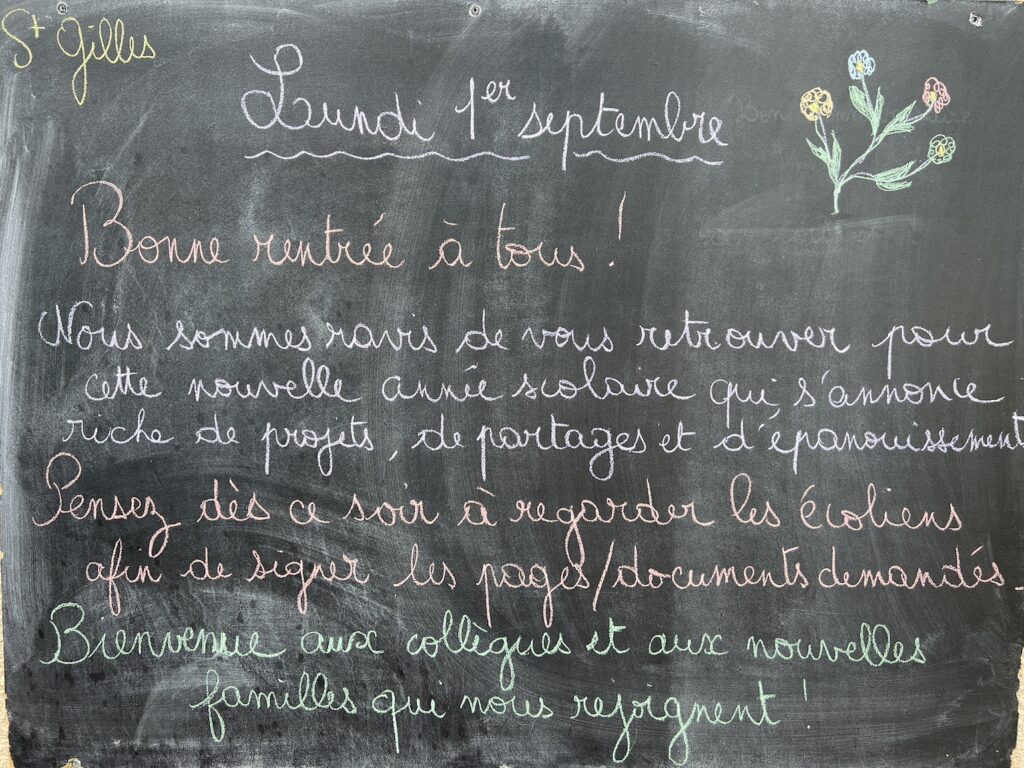 St Gilles
Lundi 1er septembre
Bonne rentrée à tous !
Nous sommes ravis de vous retrouver pour
cette nouvelle année scolaire qui s'annonce
riche de projets, de partages et d'épanouissement
Pensez dès ce soir à regarder les écoliens
afin de signer les pages/documents demandés.
Bienvenue aux collègues et aux nouvelles
familles qui nous rejoignent !